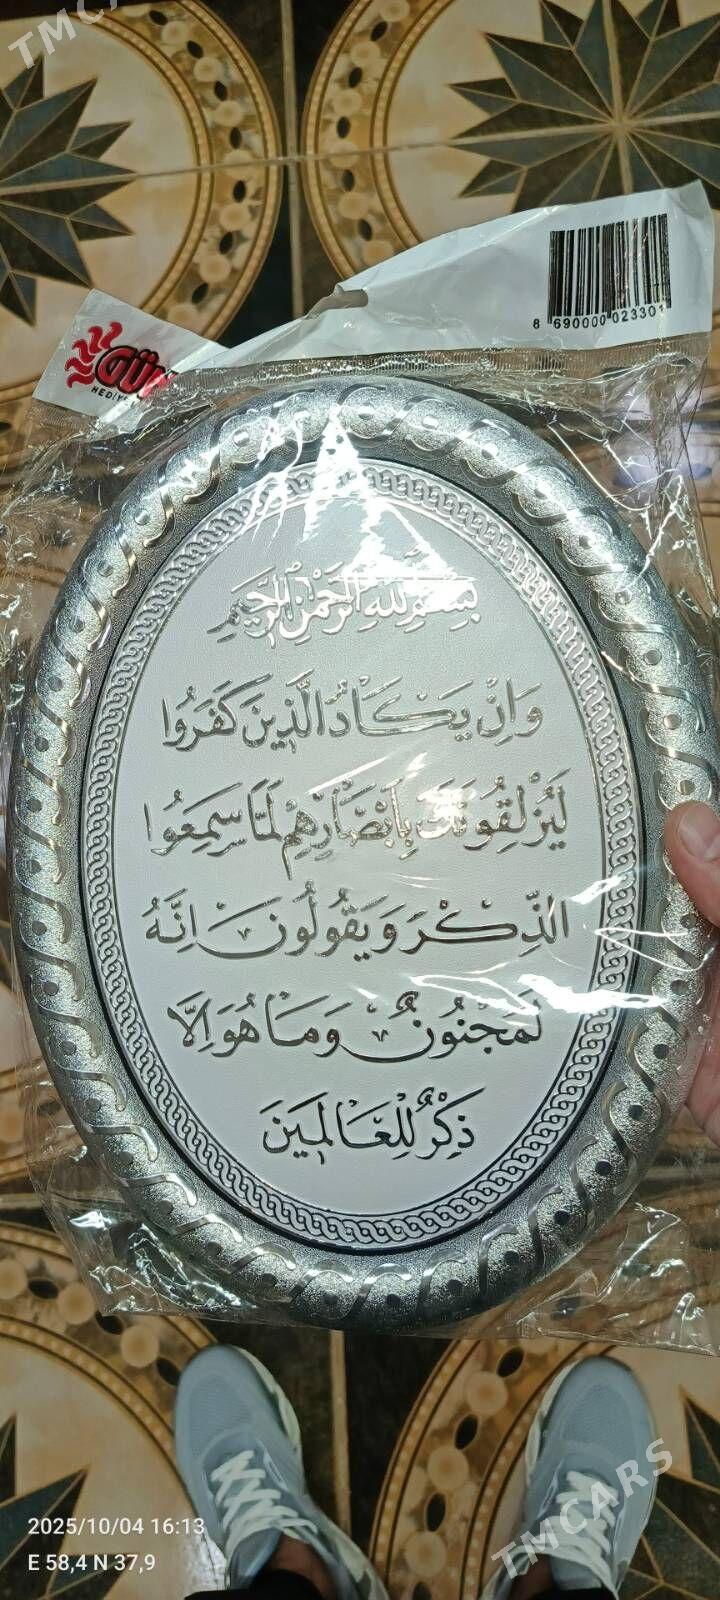 TMCA
8 690000 023301
GÜN
HEDİY
بِسْمِ اللهِ الرَّحْمٰنِ الرَّحِيمِ
وَاِنْ يَكَادُ الَّذِينَ كَفَرُوا
لَيُزْلِقُونَكَ بِاَبْصَارِهِمْ لَمَّا سَمِعُوا
الذِّكْرَ وَيَقُولُونَ اِنَّهُ
لَمَجْنُونٌ وَمَا هُوَ اِلَّا
ذِكْرٌ لِلْعَالَمِينَ
2025/10/04 16:13
E 58,4 N 37,9
TMCARS